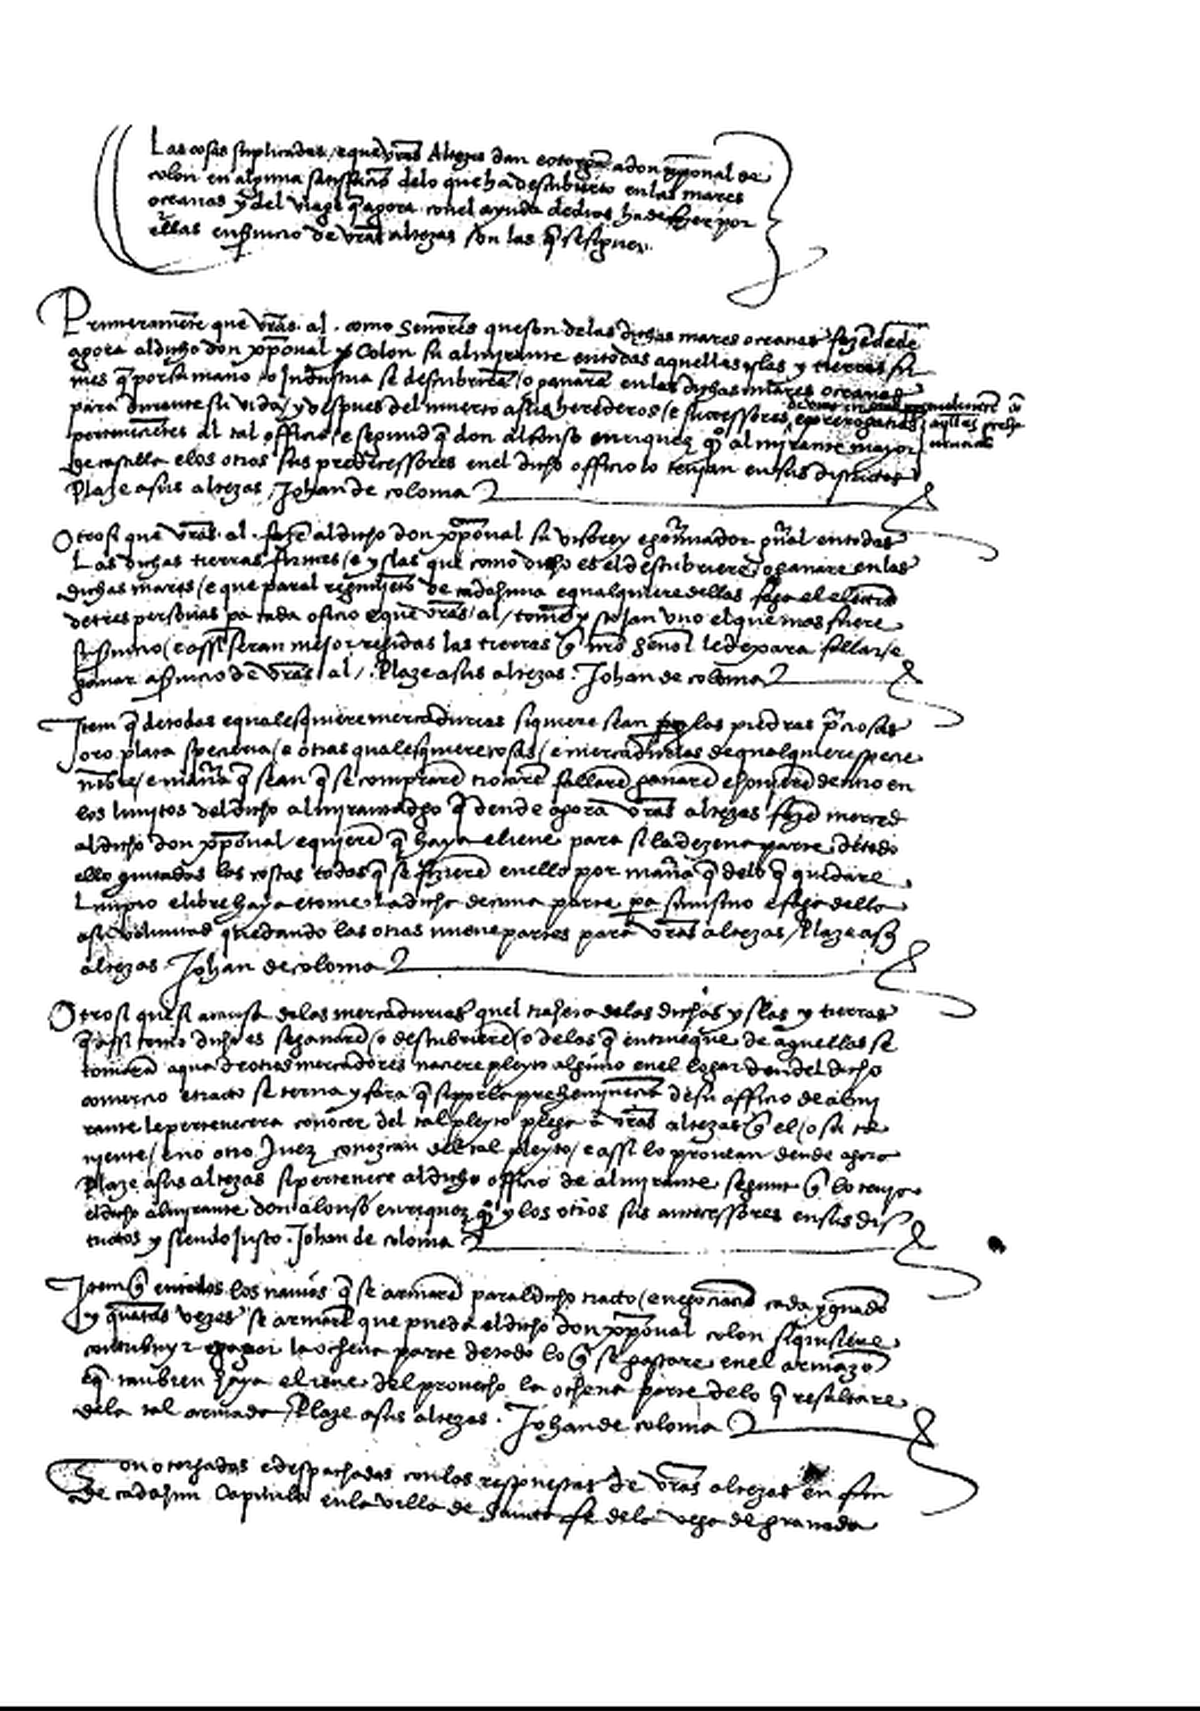 Las cosas suplicadas / e que vras Altezas dan e otorgan a don xpoual de
colon en alguna satisfacion delo que ha descubierto en las mares
oceanas y del viage q agora con el ayuda de dios ha de fazer por
ellas en seruicio de vras altezas son las q se siguen
Primeramente que vras al. como Senores que son delas dichas mares oceanas fazen dende
agora al dicho don xpoual Colon su almirante en todas aquellas yslas y tierras fir
mes q por su mano o Industria se descubriran / o ganaran en las dichas mares oceanas
para durante su vida / y despues del muerto a sus herederos / e sucessores e prerogatiuas
pertenecientes al tal officio / e segund q don alfonso enriquez almirante mayor
de castilla e los otros sus predecessores en el dicho officio lo tenian en sus districtos
Plaze a sus altezas Johan de coloma
Otrosi que vras al. fazen al dicho don xpoual su visorey e gouernador gnal en todas
Las dichas tierras firmes / e yslas que como dicho es el descubriere / o ganare en las
dichas mares / e que paral regimiento de cadahuna e qualquiere dellas faga el eleccion
de tres personas pa cada oficio e que vras al / tomen y scojan uno el que mas fuere
su seruicio / e assi seran mejor regidas las tierras q nro Senor le dexara fallar / e
ganar a seruicio de vras al / . Plaze a sus altezas . Johan de coloma
Item q de todas e qualesquiere mercadurias siquiere sean perlas piedras preciosas
oro plata specieria / e otras qualesquiere cosas / e mercadurias de qualquiere specie
nombre / e manera q sean q se compraren trocaren fallaren ganaren e houieren dentro en
los limites del dicho almirantadgo q dende agora vras altezas fazen merced
al dicho don xpoual e quieren q haya e lieue para si la dezena parte de todo
ello quitadas las costas todas q se fizieren en ello por manera q delo q quedare
Limpio e libre haya e tome La dicha decima parte pa si mismo e faga dello
a su voluntad quedando las otras nueue partes para vras altezas / Plaze a sus
altezas . Johan de coloma
Otrosi que si a causa delas mercadurias quel trahera delas dichas yslas y tierras
q assi como dicho es se ganaren / o descubrieren / o delas q en trueque de aquellas se
tomaran aqua de otros mercadores naciere pleyto alguno en el logar dondel dicho
comercio e tracto se terna y fara q si por la preheminencia de su officio de almi
rante le pertenecera conocer del tal pleyto plega a vras altezas q el / o su te
niente / e no otro Juez conozcan del tal pleyto / e assi lo prouean dende agora
Plaze a sus altezas si pertenece al dicho officio de almirante segunt q lo tenia
el dicho almirante don alonso enriquez y los otros sus antecessores en sus dis
trictos y siendo Justo . Johan de coloma
Item q en todos los nauios q se armaren paral dicho tracto / e negociacion cada y quando
y quantas vezes se armaren que pueda el dicho don xpoual colon si quisiere
contribuyr e pagar la ochena parte de todo lo q se gastare en el armazon
e q tambien haya e lieue del prouecho la ochena parte delo q resultare
dela tal armada Plaze a sus altezas . Johan de coloma
Son otorgadas e despachadas con las respuestas de vras altezas en fin
de cadahun Capitulo en la villa de Sancta fe dela vega de granada